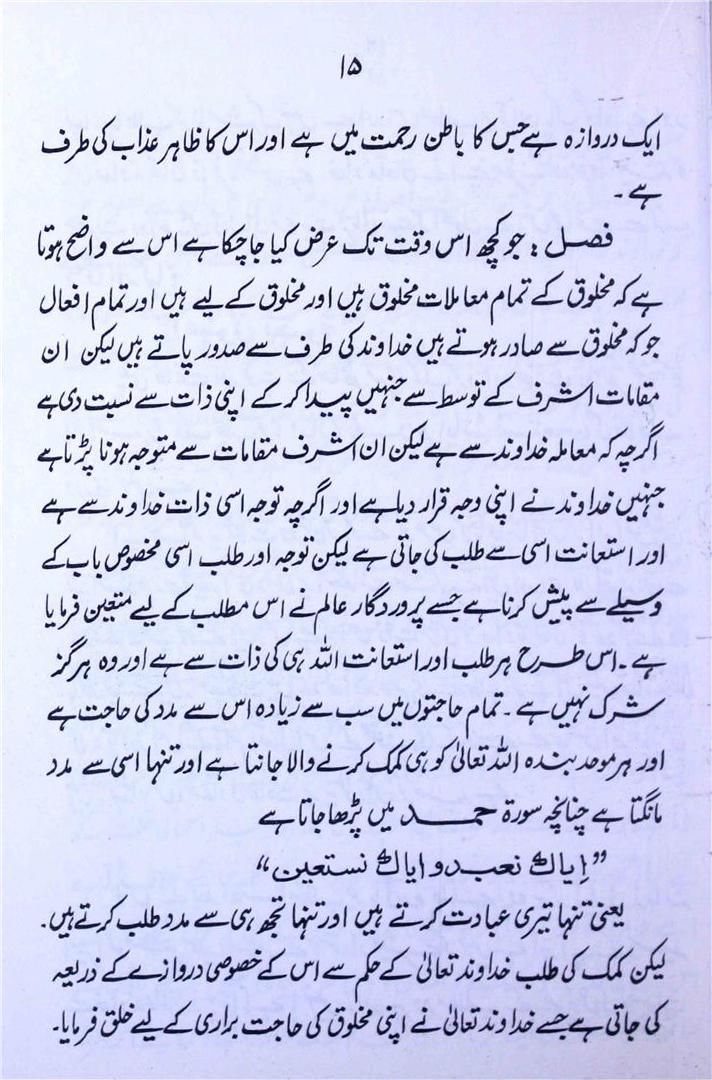 ۱۵
ایک دروازہ ہے جس کا باطن رحمت میں ہے اور اس کا ظاہر عذاب کی طرف
ہے ۔
فصل : جو کچھ اس وقت تک عرض کیا جا چکا ہے اس سے واضح ہوتا
ہے کہ مخلوق کے تمام معاملات مخلوق ہیں اور مخلوق کے لیے ہیں اور تمام افعال
جو کہ مخلوق سے صادر ہوتے ہیں خداوند کی طرف سے صدور پاتے ہیں لیکن ان
مقامات اشرف کے توسط سے جنہیں پیدا کر کے اپنی ذات سے نسبت دی ہے
اگرچہ کہ معاملہ خداوند سے ہے لیکن ان اشرف مقامات سے متوجہ ہونا پڑتا ہے
جنہیں خداوند نے اپنی وجہ قرار دیا ہے اور اگرچہ توجہ اسی ذات خداوند سے ہے
اور استعانت اسی سے طلب کی جاتی ہے لیکن توجہ اور طلب اسی مخصوص باب کے
وسیلے سے پیش کرنا ہے جسے پروردگار عالم نے اس مطلب کے لیے متعین فرمایا
ہے ۔ اس طرح ہر طلب اور استعانت اللہ ہی کی ذات سے ہے اور وہ ہرگز
شرک نہیں ہے ۔ تمام حاجتوں میں سب سے زیادہ اس سے مدد کی حاجت ہے
اور ہر موحد بندہ اللہ تعالیٰ کو ہی کمک کرنے والا جانتا ہے اور تنہا اسی سے مدد
مانگتا ہے چنانچہ سورۃ حمد میں پڑھا جاتا ہے
”اِیاک نعبد و ایاک نستعین“
یعنی تنہا تیری عبادت کرتے ہیں اور تنہا تجھ ہی سے مدد طلب کرتے ہیں ۔
لیکن کمک کی طلب خداوند تعالیٰ کے حکم سے اس کے خصوصی دروازے کے ذریعہ
کی جاتی ہے جسے خداوند تعالیٰ نے اپنی مخلوق کی حاجت براری کے لیے خلق فرمایا ۔